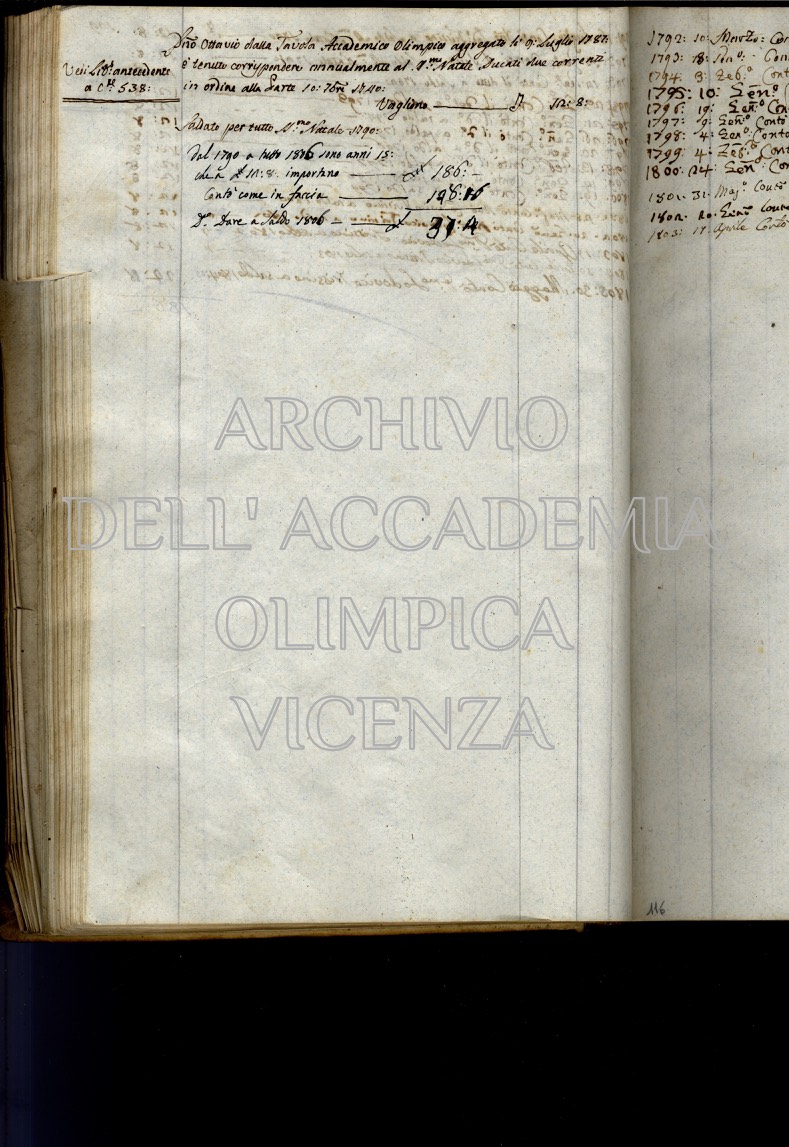 Vedi Lib.º antecedente
a C.te 538:
Dño Ottavio dalla Tavola Accademico Olimpico aggregato li 9: Luglio 1787:
è tenuto corrispondere annualmente al S.mo Natale Ducati due correnti
in ordine alla Parte 10: 7bre 1740:
Vagliono 12: 8:
Saldato per tutto S.mo Natale 1790:
Dal 1790 a tutto 1806 sono anni 15:
che a 12: 8: importano 186: –
Contò come in faccia 148:16
D.º Dare a Saldo 1806 – 37: 4
1792: 10: Marzo:
1793: 8:
1794: 3: Feb.º Cont
1795: 10: Gen.º
1796: 19: Gen.º Con
1797: 9: Gen.º Contò
1798: 4: Gen.º Contò
1799: 4: Feb.º Cont
1800: 24: Gen.º Con
1801: 31: Mag.º Contò
1802: 20: Gen.º Contò
1803: 17: Aprile Contò
116
ARCHIVIO
DELL' ACCADEMIA
OLIMPICA
VICENZA